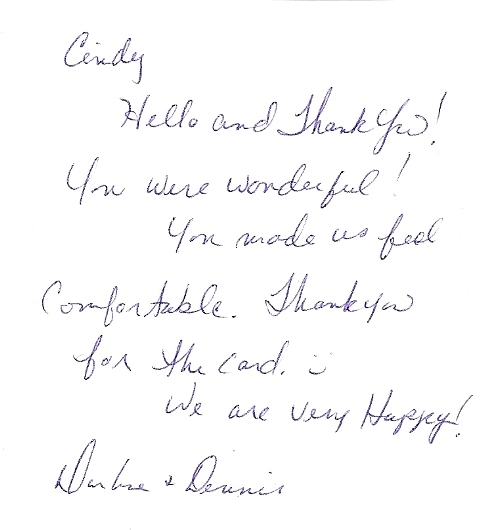 Cindy
Hello and Thank You!
You were wonderful!
You made us feel
Comfortable. Thank you
for the card. :)
We are very Happy!
& Dennis